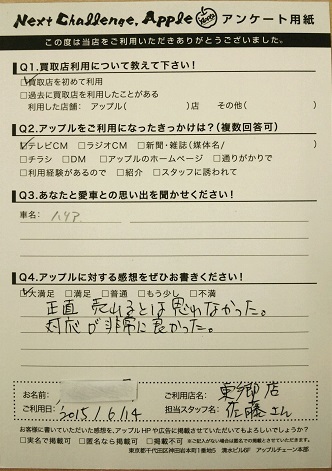 Next Challenge, Apple アンケート用紙
この度は当店をご利用いただきありがとうございました。
Q1.買取店利用について教えて下さい！
☑買取店を初めて利用
□過去に買取店を利用したことがある
利用した店舗： アップル( )店 その他( )
Q2.アップルをご利用になったきっかけは？(複数回答可)
☑テレビCM □ラジオCM □新聞・雑誌(媒体名/ )
□チラシ □DM □アップルのホームページ □通りがかりで
□利用経験があるので □紹介 □スタッフに誘われて
Q3.あなたと愛車との思い出を聞かせください！
車名： ハリアー
Q4.アップルに対する感想をぜひお書きください！
☑大満足 □満足 □普通 □もう少し □不満
正直 売れるとは思わなかった。
対応が非常に良かった。
お名前： ご利用店名： 東郷店
ご利用日： 2015.1.6/14 担当スタッフ名： 佐藤さん
お客様に書いていただいた感想を、アップルHPや広告に掲載させていただいてもよろしいでしょうか？
□実名で掲載可 □匿名なら掲載可 □掲載不可 ※ご記入がない場合は匿名での掲載とさせていただきます。
東京都千代田区神田岩本町1番地5 清水ビル6F アップルチェーン本部